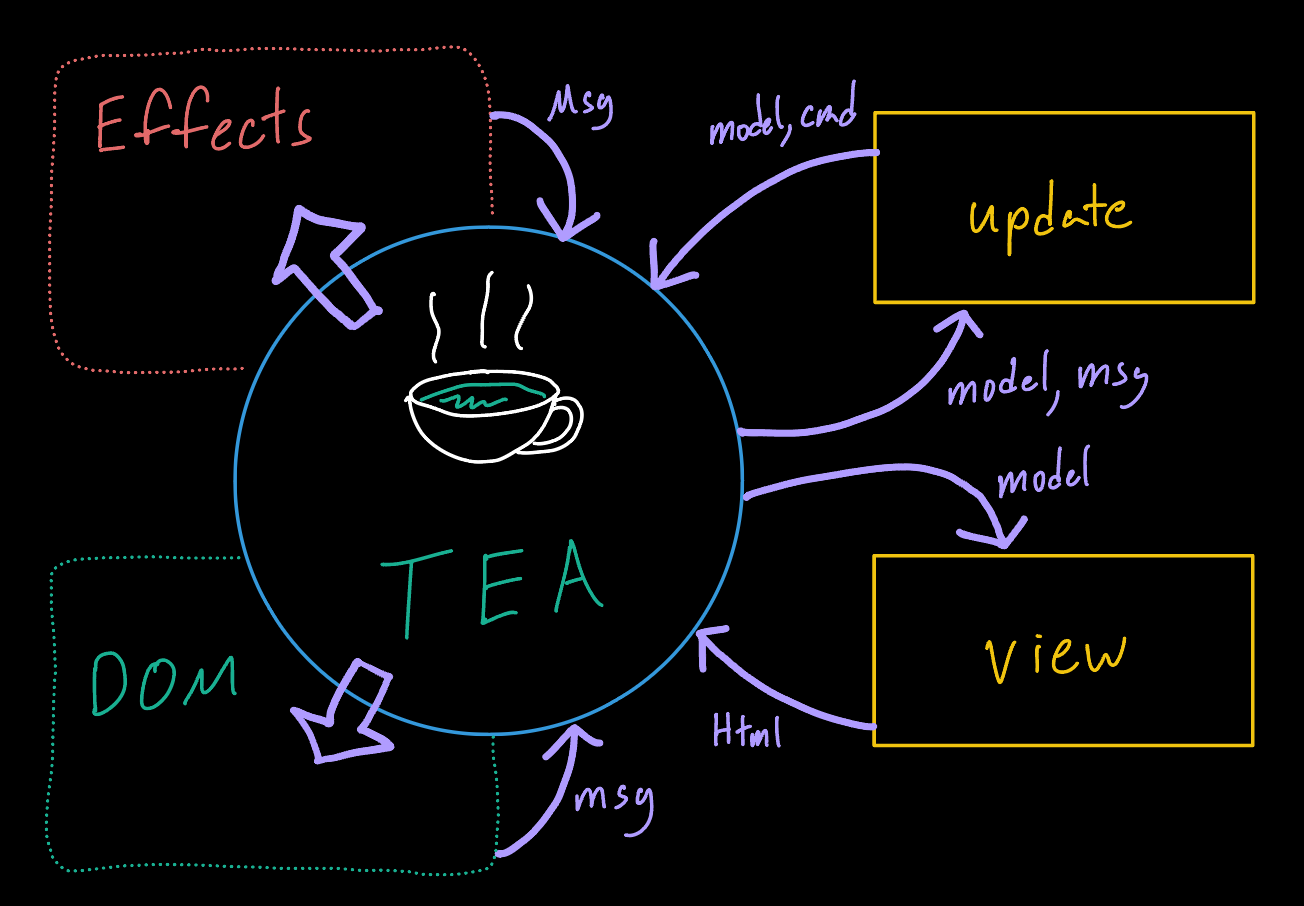 Effects
Msg
model, cmd
update
model, msg
model
TEA
DOM
view
Html
msg